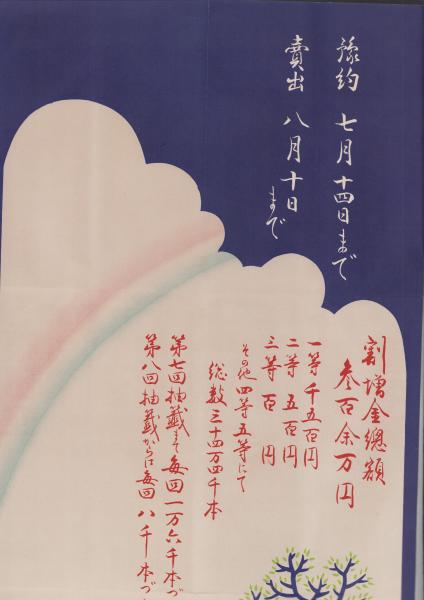 豫約 七月十四日まで
賣出 八月十日まで
割增金總額
参百余万円
一等千五百円
二等 五百円
三等 百 円
その他四等五等にて
総数三十四万四千本
第七回抽籤まで毎回一万六千本づ
第八回抽籤からは毎回 八千本づ